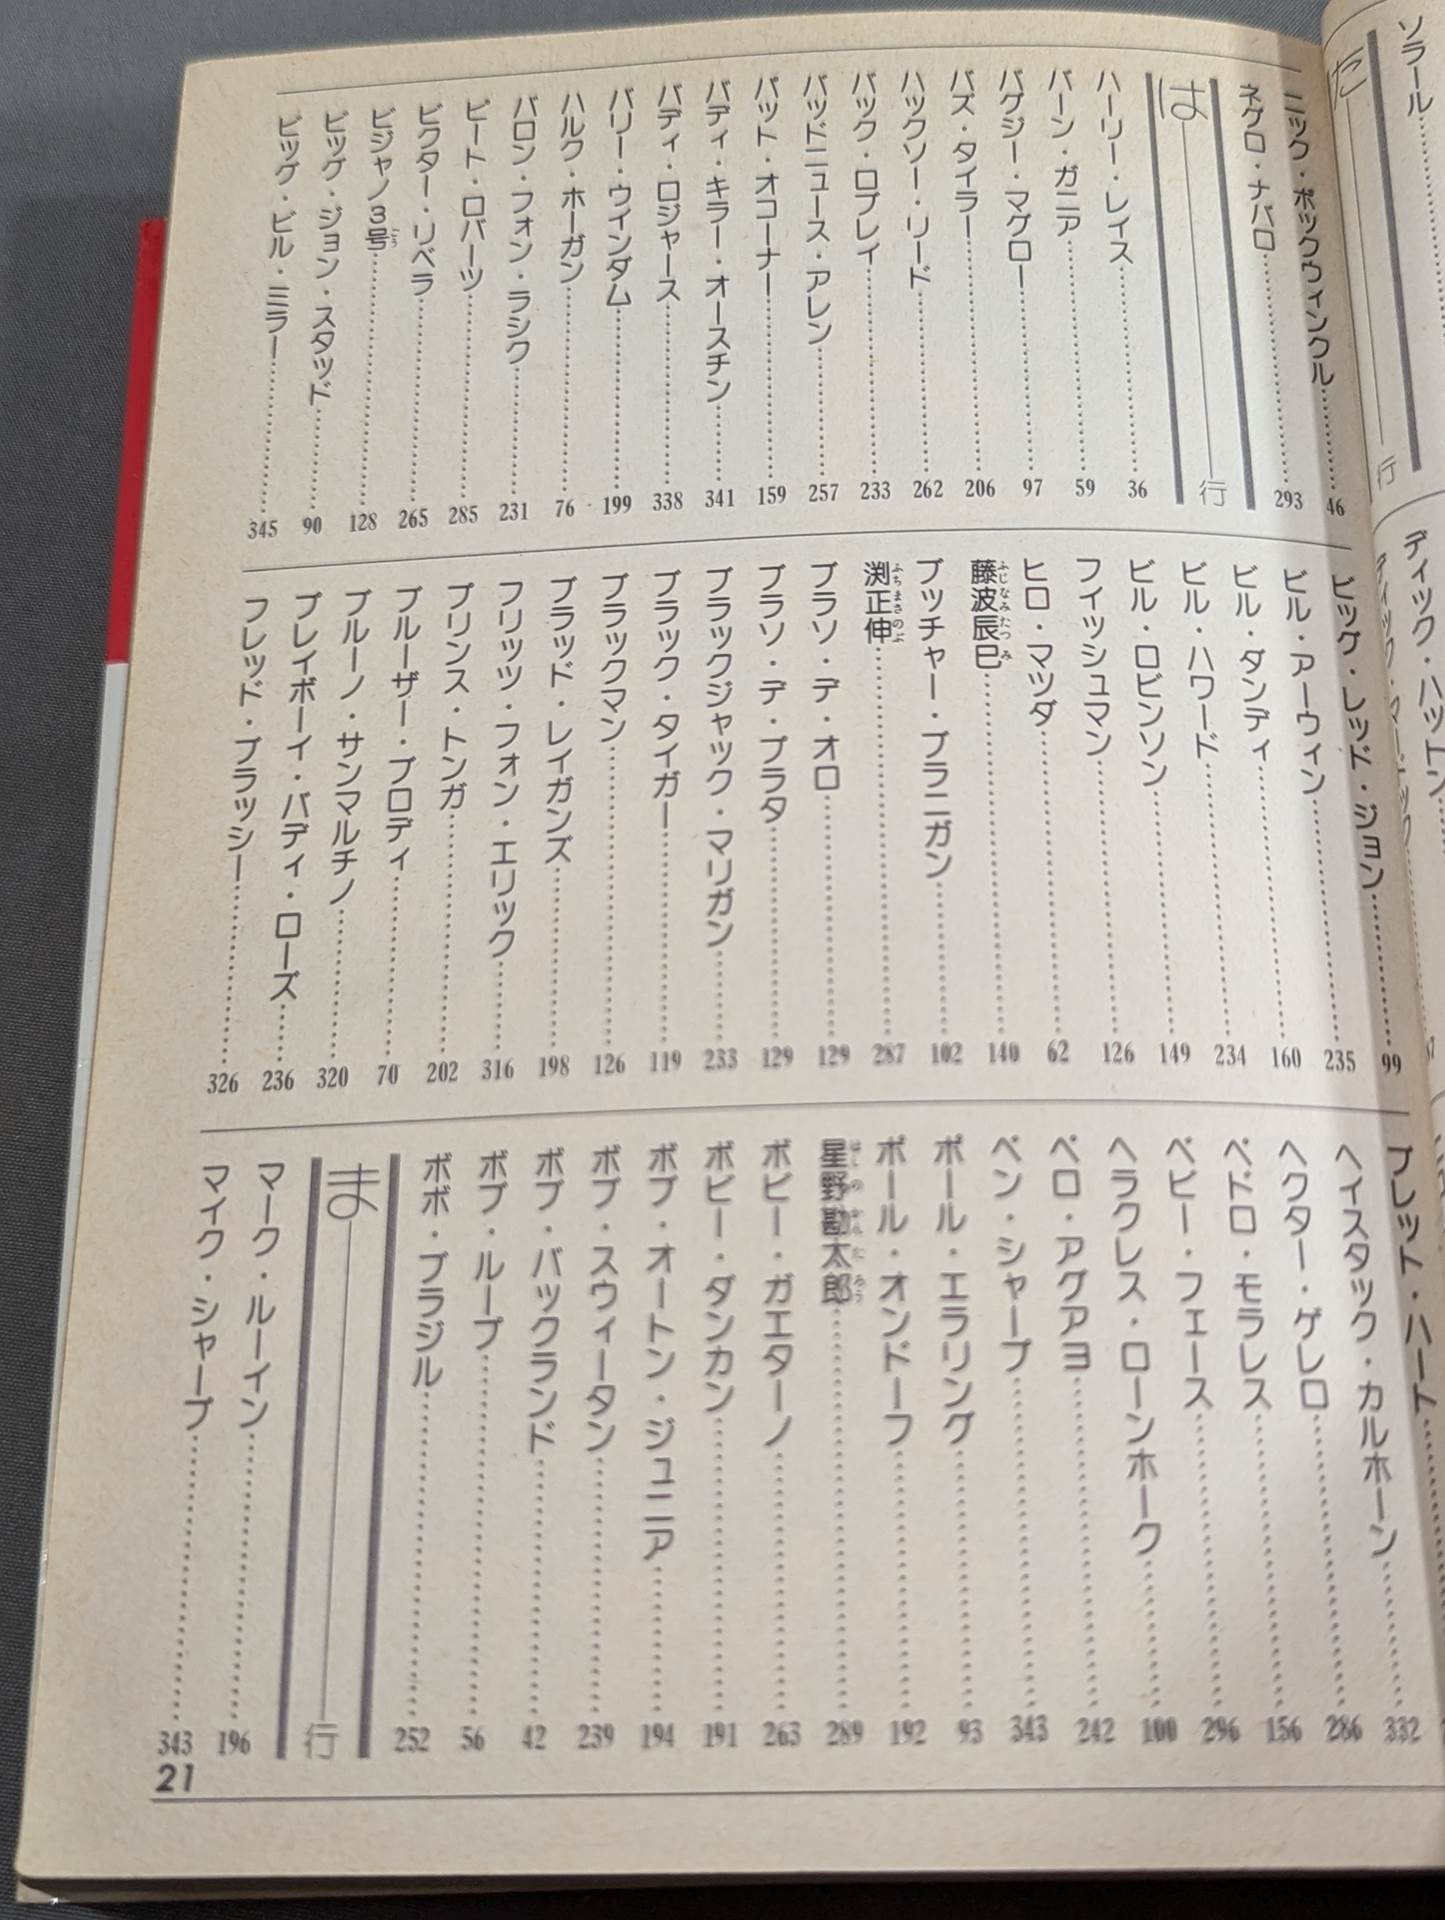 ソラール
た
行
ディック・ハットン
ニック・ボックウィンクル……46
ネグロ・ナバロ……293
は
行
ハーリー・レイス……36
バーン・ガニア……59
バグジー・マグロー……97
バズ・タイラー……206
ハックソー・リード……262
バック・ロブレイ……233
バッドニュース・アレン……257
パット・オコーナー……159
バディ・キラー・オースチン……341
バディ・ロジャース……338
バリー・ウインダム……199
ハルク・ホーガン……76
バロン・フォン・ラシク……231
ビート・ロバーツ……285
ビクター・リベラ……265
ビジャノ3号……128
ビッグ・ジョン・スタッド……90
ビッグ・ビル・ミラー……345
ビッグ・レッド・ジョン……99
ビル・アーウィン……235
ビル・ダンディ……160
ビル・ハワード……234
ビル・ロビンソン……149
フィッシュマン……126
ヒロ・マツダ……62
藤波辰巳……140
ブッチャー・ブラニガン……102
渕正伸……287
ブラソ・デ・オロ……129
ブラソ・デ・プラタ……129
ブラックジャック・マリガン……233
ブラック・タイガー……119
ブラックマン……126
ブラッド・レイガンズ……198
フリッツ・フォン・エリック……316
プリンス・トンガ……202
ブルーザー・ブロディ……70
ブルーノ・サンマルチノ……320
プレイボーイ・バディ・ローズ……236
フレッド・ブラッシー……326
ブレット・ハート
ヘイスタック・カルホーン……332
ヘクター・ゲレロ……286
ペドロ・モラレス……156
ベビー・フェース……296
ヘラクレス・ローンホーク……100
ペロ・アグアヨ……242
ベン・シャープ……343
ポール・エラリング……93
ポール・オンドーフ……192
星野勘太郎……289
ボビー・ガエターノ……263
ボビー・ダンカン……191
ボブ・オートン・ジュニア……194
ボブ・スウィータン……239
ボブ・バックランド……42
ボブ・ループ……56
ボボ・ブラジル……252
ま
行
マーク・ルーイン……196
マイク・シャープ……343
21